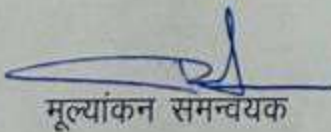 मूल्यांकन समन्वयक